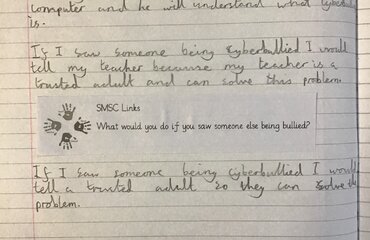 computer and he will understand what cyberbull
is.
If I saw someone being cyberbullied I would
tell my teacher because my teacher is a
trusted adult and can solve this problem.
SMSC Links
What would you do if you saw someone else being bullied?
If I saw someone being cyberbullied I would
tell a trusted adult so they can solve the
problem.